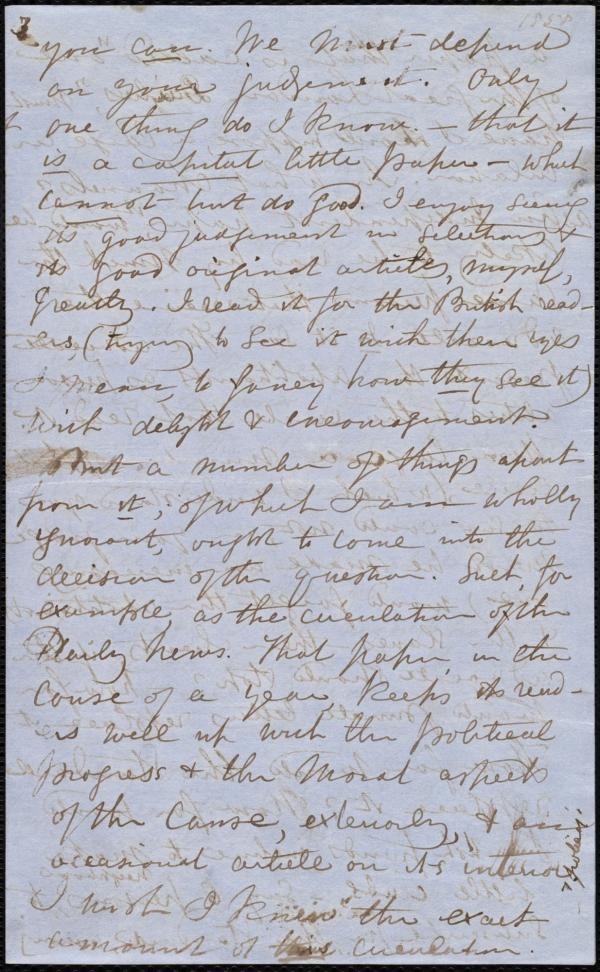 3
1858
you can. We must depend
on your judgement. Only
one thing do I know. – that it
is a capital little paper – what
cannot but do good. I enjoy seeing
its good judgement in selections &
its good original articles, myself,
greatly. I read it for the British read-
ers, (trying to see it with their eyes
I mean, to fancy how they see it)
with delight & encouragement.
But a number of things apart
from it, of which I am wholly
ignorant, ought to come into the
decision of the question. Such, for
example, as the circulation of the
Daily News. That paper, in the
course of a year, keeps its read-
ers well up with the political
progress & the moral aspects
of the Cause, exteriorly, & an
occasional article on its interior
I wish I knew the exact
amount of this circulation.